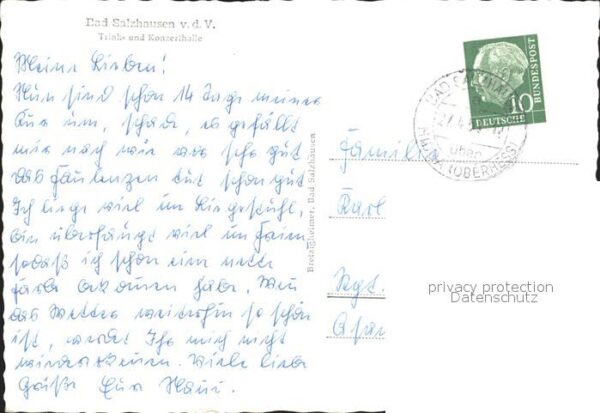 Bad Salzhausen v. d. V.
Trink- und Konzerthalle
Meine Lieben!
Nun sind schon 14 Tage meiner
Kur um, schade, es gefällt
mir nach wie vor sehr gut
das Faulenzen tut schon gut
Ich liege viel im Liegestuhl,
bin überhaupt viel im Freien,
sodaß ich schon eine nette
Farbe bekommen habe. Wenn
das Wetter weiterhin so schön
ist, werdet Ihr mich nicht
wiedererkennen. Viele liebe
Grüße Eure
Bad Salzhausen
Familie
Karl
10
DEUTSCHE
BUNDESPOST
BAD SALZHAUSEN
über
(OBERHESS)
privacy protection
Datenschutz